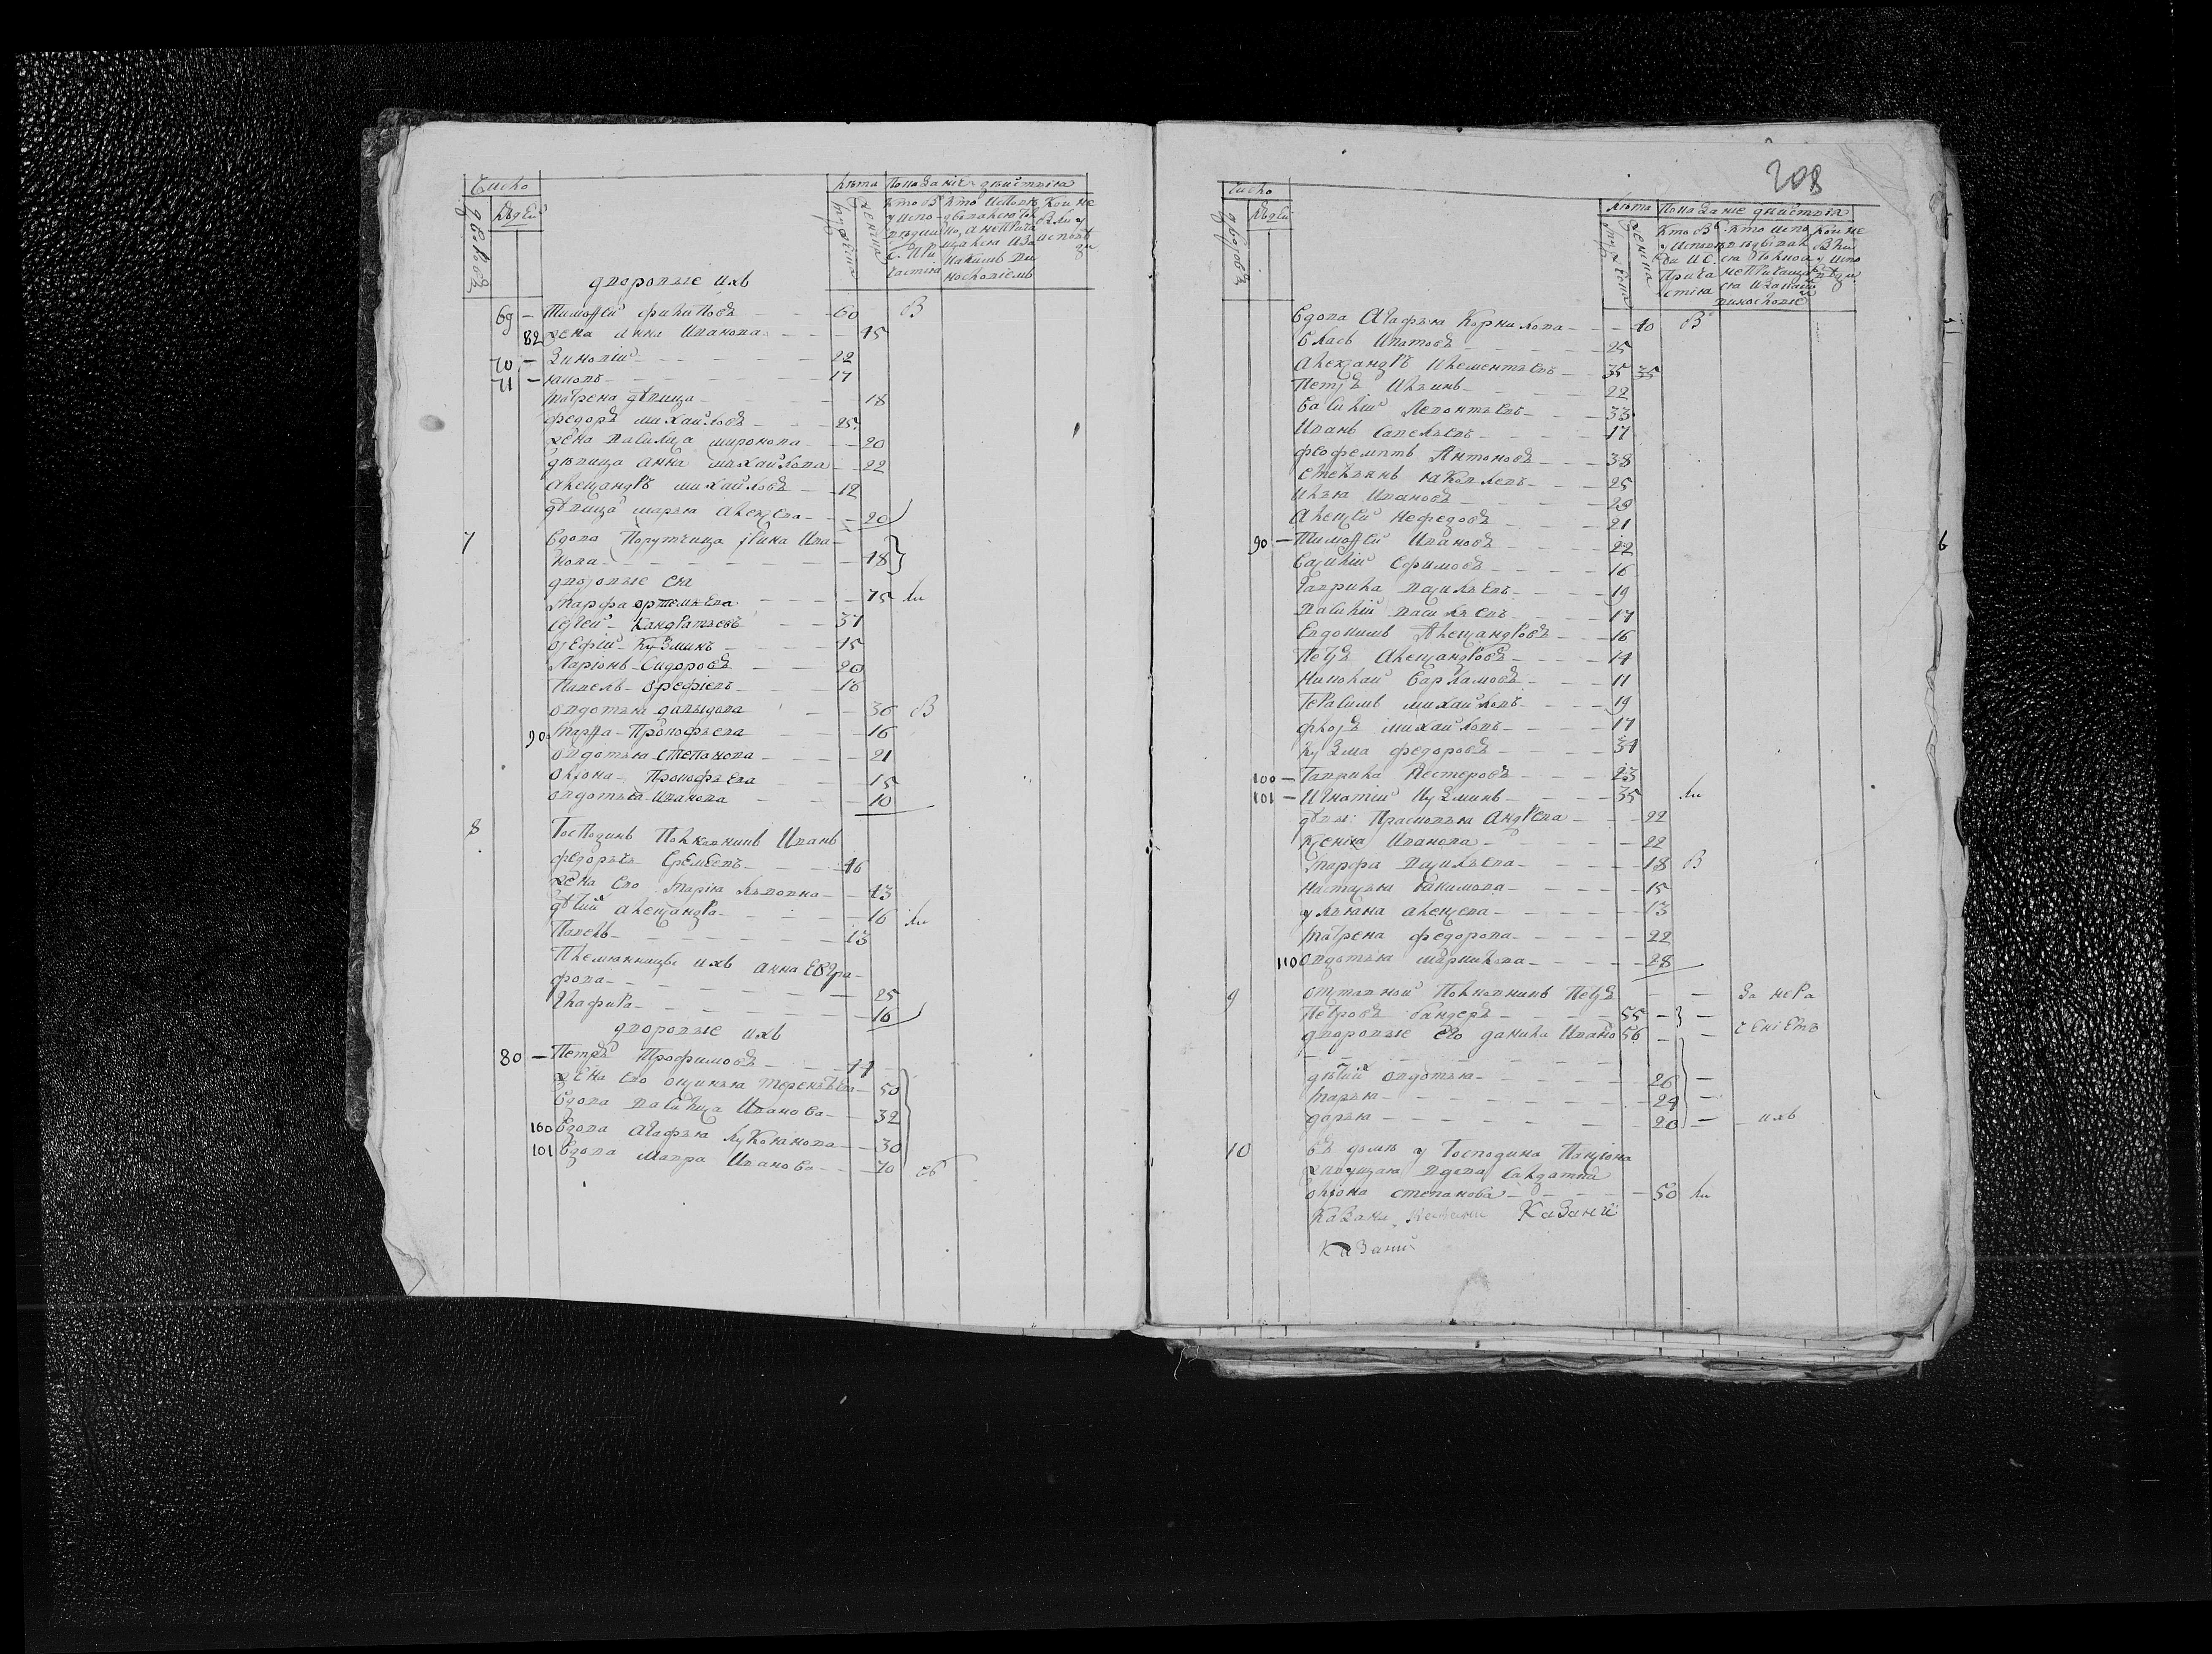 Число
дворовъ
людей
лѣта
мужескъ
женска
показание действия
дворовые ихъ
69 — Тимофей филиповъ — 60 В
82 жена Анна Иванова — 45
70 — Зиновій — 22
71 — яковъ — 17
матрена девица — 18
федоръ михайловъ — 25
жена василиса миронова — 20
девица анна михайлова — 22
александръ михайловъ — 12
девица марья алексева — 20
7 вдова Порутчица ірина Ива-
нова — 48
дворовые ея
марфа артемьева — 75 ли
сергей Кандратьевъ — 37
орефий Кузминъ — 45
Ларіонъ Сидоровъ — 20
Павелъ орефіевъ — 16
овдотья давыдова — 36 В
90 марфа Прокофьева — 16
овдотья степанова — 21
окъсона Прокофьева — 15
овдотья иванова — 10
8 Господинъ Полковникъ Иванъ
федоръчь — 46
жена ево марія львовна — 43
детий александра — 16 ли
Павелъ — 13
Племянницы ихъ анна Евгра-
фова — 25
Глафира — 16
дворовые ихъ
80 — Петръ Трофимовъ — 44
жена ево терентьева — 50
вдова василиса Иванова — 32
100 вдова агафья лукоянова — 30
101 вдова мавра Иванова — 70
208
Число
дворовъ
людей
лѣта
мужеска
женска
показание действия
вдова Агафья Корнилова — 40 В
влась Ипатовъ — 25
александръ Клементьевъ — 35 35
Петръ Ильинъ — 22
василий Леонтьевъ — 33
Иванъ савельевъ — 17
феофемптъ Антоновъ — 38
степанъ яковлевъ — 25
илья Ивановъ — 28
алексей нефедовъ — 21
90 — Тимофей Ивановъ — 22
василий Ефимовъ — 16
гаврила васильевъ — 19
василий васильевъ — 17
Евдокимъ Александровъ — 16
Петръ александровъ — 14
николай варламовъ — 11
герасимъ михайловъ — 19
флоръ михайловъ — 17
кузма федоровъ — 34
100 — гаврила нестеровъ — 23
101 — Игнатий Кузминъ — 35 ли
девы: Прасковья андрева — 22
ксения Иванова — 22
марфа васильева — 18 В
настасья акимова — 15
ульяна алексева — 13
матрена федорова — 22
110 овдотья — 28
9 отставной Полковникъ Петръ — За нера
Петровъ бандеръ — 55
дворовые его данила Ивано 56 — чениемъ
детий овдотья — 26
марья — 24
дарья — 20 — ихъ
10 въ доме у Господина
живущая вдова салдатка
окъсона степанова — 50 ли
Казани Казани
Казани